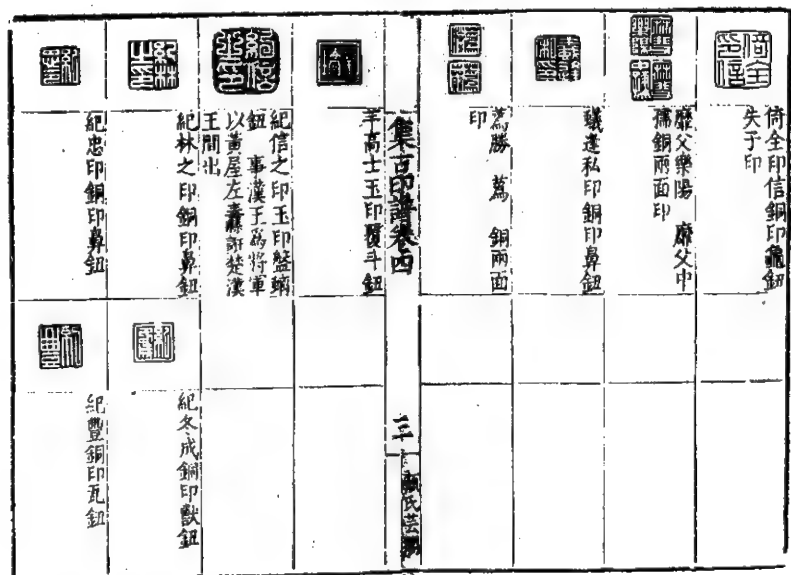 倚全印信銅印龜鈕
失子印
靡父樂陽 靡父中
孺銅兩面印
蟻逢私印銅印鼻鈕
蔿勝 蔿 銅兩面
印
集古印譜卷四
三十
顧氏芸閣
羊高士玉印覆斗鈕
紀信之印玉印盤螭
鈕 事漢王為將軍
以黃屋左纛誑楚漢
王間出
紀林之印銅印鼻鈕
紀冬成銅印獸鈕
紀忠印銅印鼻鈕
紀豐銅印瓦鈕